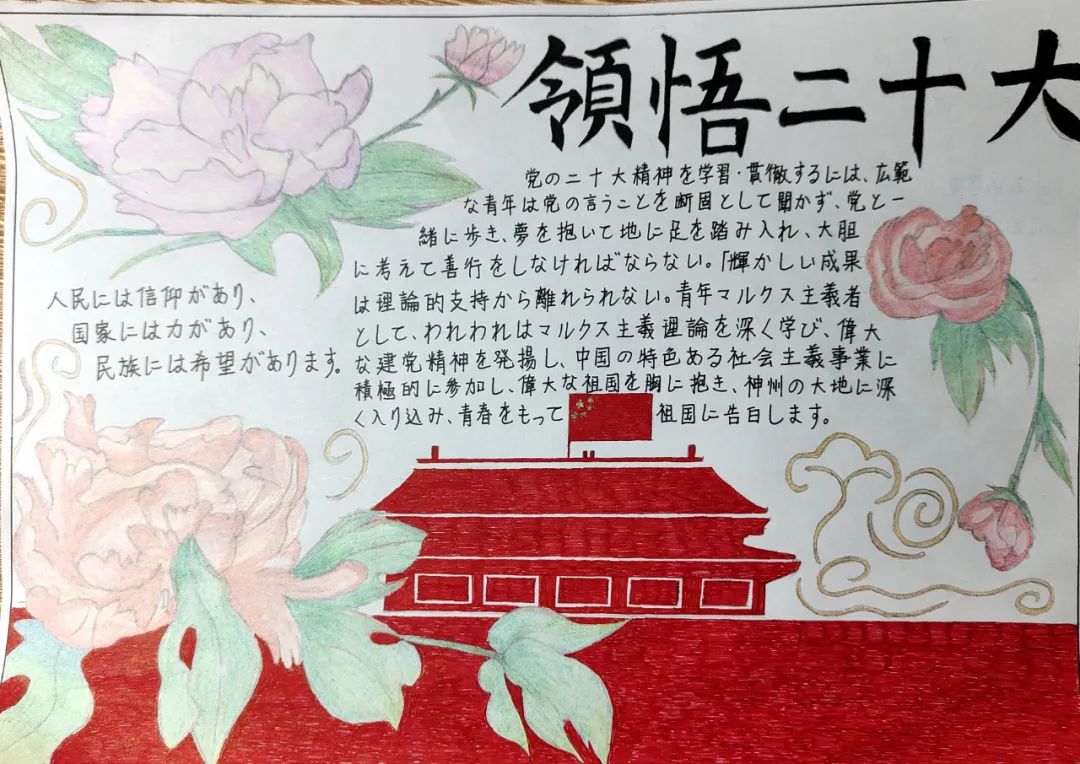 領悟二十大
党の二十大精神を学習·貫徹するには、広範
な青年は党の言うことを断固として聞かず、党と一
緒に歩き、夢を抱いて地に足を踏み入れ、大胆
に考えて善行をしなければならない。「輝かしい成果
は理論的支持から離れられない。青年マルクス主義者
として、われわれはマルクス主義理論を深く学び、偉大
な建党精神を発揚し、中国の特色ある社会主義事業に
積極的に参加し、偉大な祖国を胸に抱き、神州の大地に深
く入り込み、青春をもって祖国に告白します。
人民には信仰があり、
国家には力があり、
民族には希望があります。